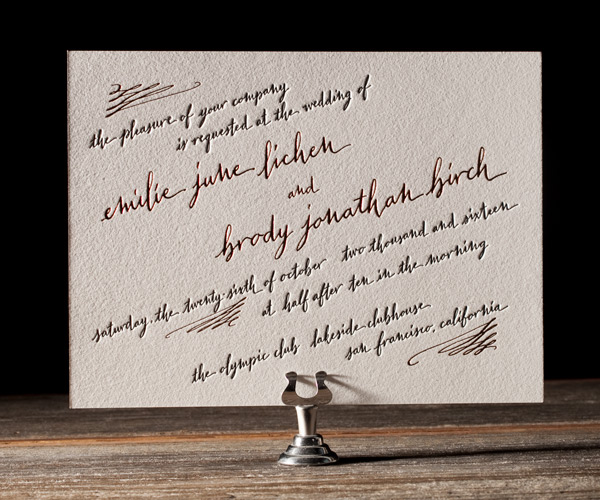 the pleasure of your company
is requested at the wedding of
emilie june lichen
and
brody jonathan birch
saturday, the twenty-sixth of october two thousand and sixteen
at half after ten in the morning
the olympic club lakeside clubhouse
san francisco, california